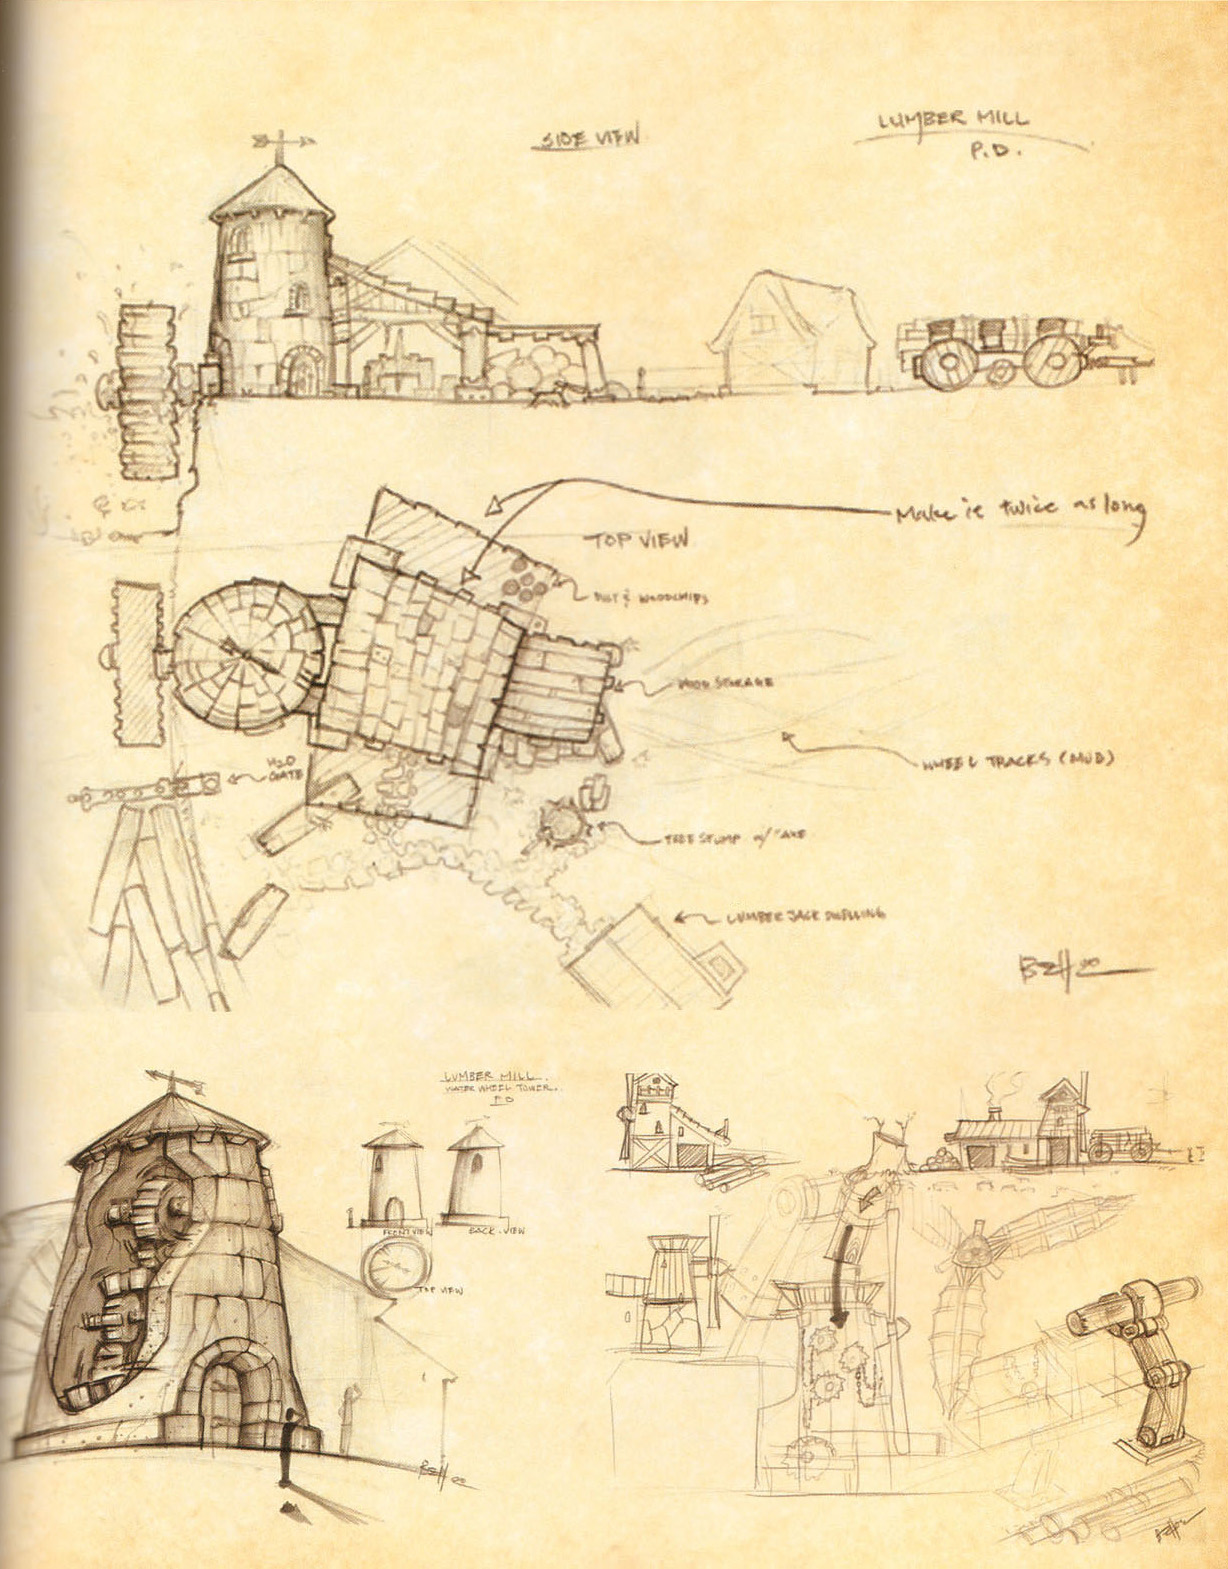 LUMBER MILL
P.D.
SIDE VIEW
Make it twice as long
TOP VIEW
DUST & WOODCHIPS
WOOD STORAGE
WHEEL TRACKS (MUD)
H2O
GATE
TREE STUMP w/ AXE
LUMBER JACK DWELLING
LUMBER MILL
WATER WHEEL TOWER
P.D
FRONT VIEW
BACK VIEW
TOP VIEW